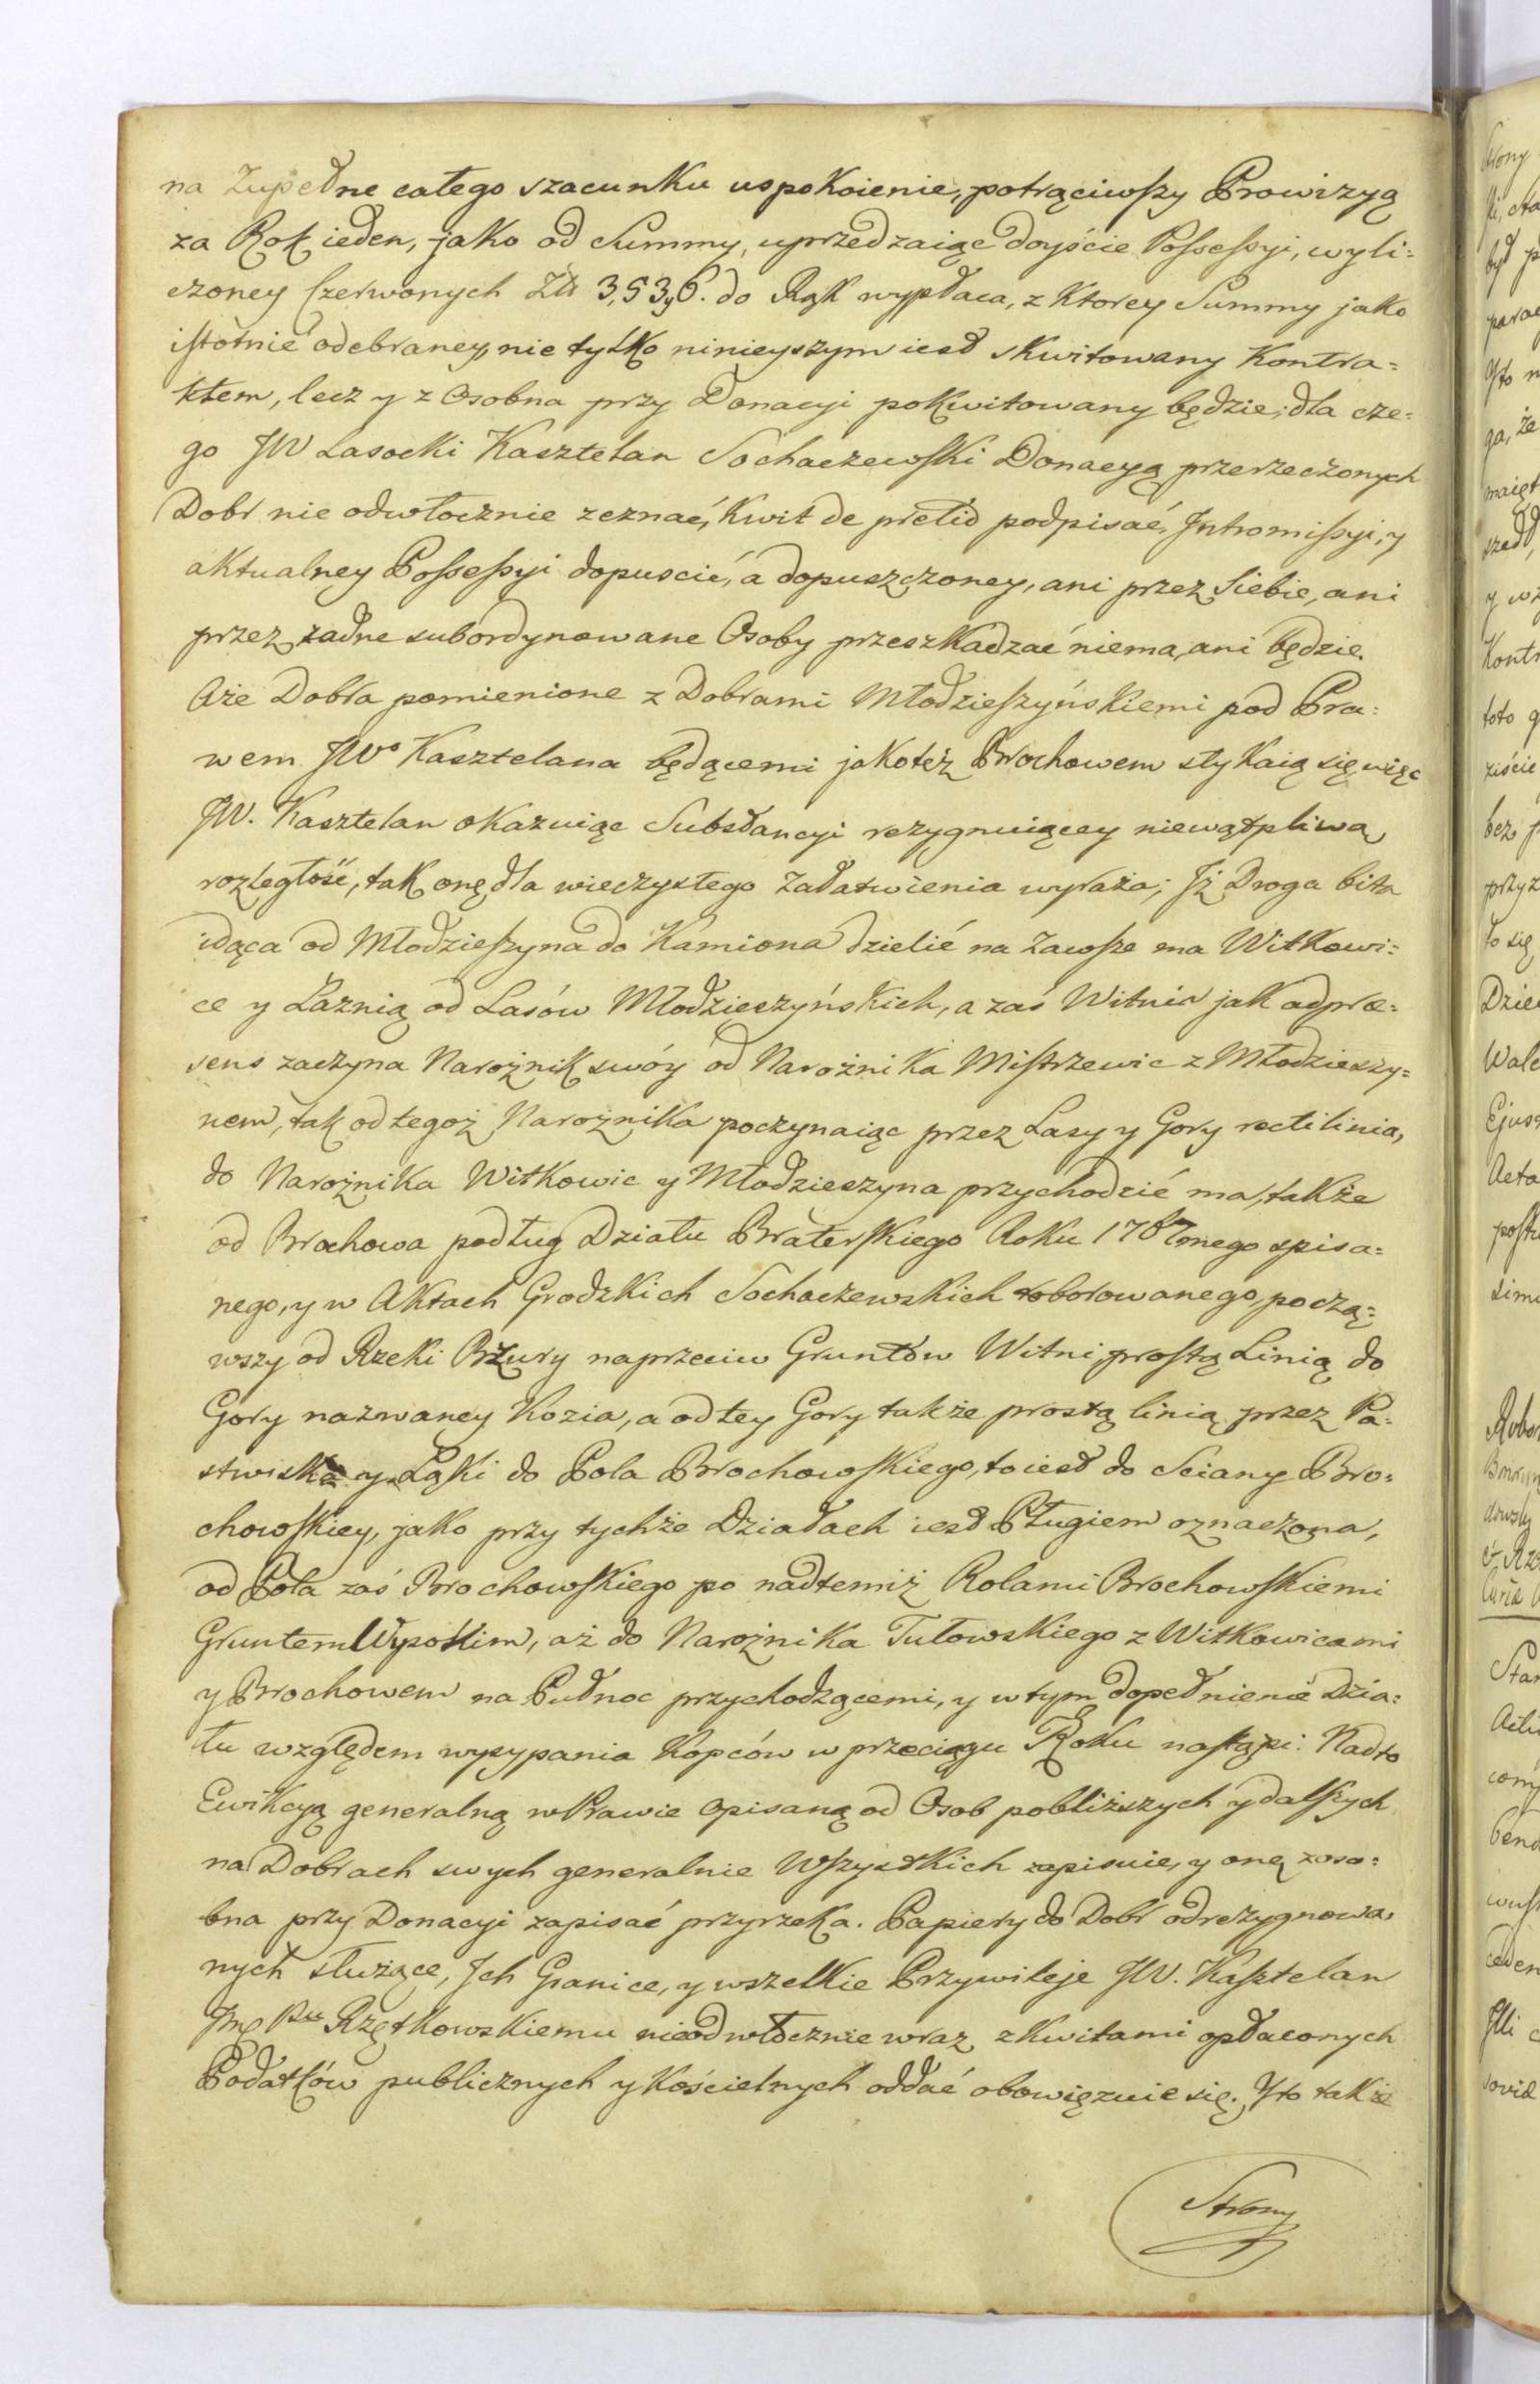 na Zupełne całego szacunku uspokoienie, potrąciwszy Prowizyą
za Rok ieden, jako od Summy, uprzedzaiąc doyście Possessyi, wyli=
czoney Czerwonych Złł 3,536. do Rąk wypłaca, z Ktorey Summy jako
istotnie odebraney, nie tylko ninieyszym iest skwitowany Kontra=
ktem, lecz y z Osobna przy Donacyi pokwitowany będzie; dla cze=
go JW Lasocki Kasztelan Sochaczewski Donacyą przerzeczonych
Dobr nie odwłocznie zeznać, Kwit de pretio podpisać, Intromissyi, y
aktualney Possessyi dopuscić, a dopuszczoney, ani przez Siebie, ani
przez żadne subordynowane Osoby przeszkadzać niema, ani będzie.
Aże Dobra pomienione z Dobrami Młodzieszyńskiemi pod Pra=
wem JWo Kasztelana będącemi jakoteż Brochowem stykaią się, więc
JW. Kasztelan okazuiąc Substancyi rezygnuiącey niewątpliwą
rozległość, tak onę dla wieczystego Załatwienia wyraża; Iż Droga bita
idąca od Młodzieszyna do Kamiona dzielić na Zawsze ma Witkowi=
ce y Łaznią od Lasów Młodzieszyńskich, a zaś Witnia jak adprae=
sens zaczyna Narożnik swóy od Narożnika Mistrzewic z Młodzieszy=
nem, tak od tegoż Narożnika poczynaiąc przez Lasy y Gory recti linia,
do Narożnika Witkowic y Młodzieszyna przychodzić ma, także
od Brochowa podług Działu Braterskiego Roku 1767mego spisa=
nego, y w Aktach Grodzkich Sochaczewskich roborowanego, począ=
wszy od Rzeki Bzury naprzeciw Gruntów Witni, prostą Linią do
Gory nazwaney Kozia, a od tey Gory także prostą linią przez Pa=
stwiska y Łąki do Pola Brochowskiego, to iest do Sciany Bro=
chowskiey, jako przy tychże Działach iest Pługiem oznaczona,
od Pola zaś Brochowskiego po nadtemiż Rolami Brochowskiemi
Gruntem Wysokim, aż do Narożnika Tułowskiego z Witkowicami
y Brochowem na Pułnoc przychodzącemi, y w tym dopełnienie Dzia=
łu względem wysypania Kopców w przeciągu Roku nastąpi: Nadto
Ewikcyą generalną w Prawie opisaną od Osob pobliższych y dalszych
na Dobrach swych generalnie Wszystkich zapisuie, y onę zoso=
bna przy Donacyi zapisać przyrzeka. Papiery do Dobr odrezygnowa=
nych służące, Ich Granice, y wszelkie Przywileje JW. Kasztelan
Jmę Pu Rzętkowskiemu nieodwłocznie wraz z Kwitami opłaconych
Podatków publicznych y Kościelnych oddać obowięzuie się. Yto także
Strony